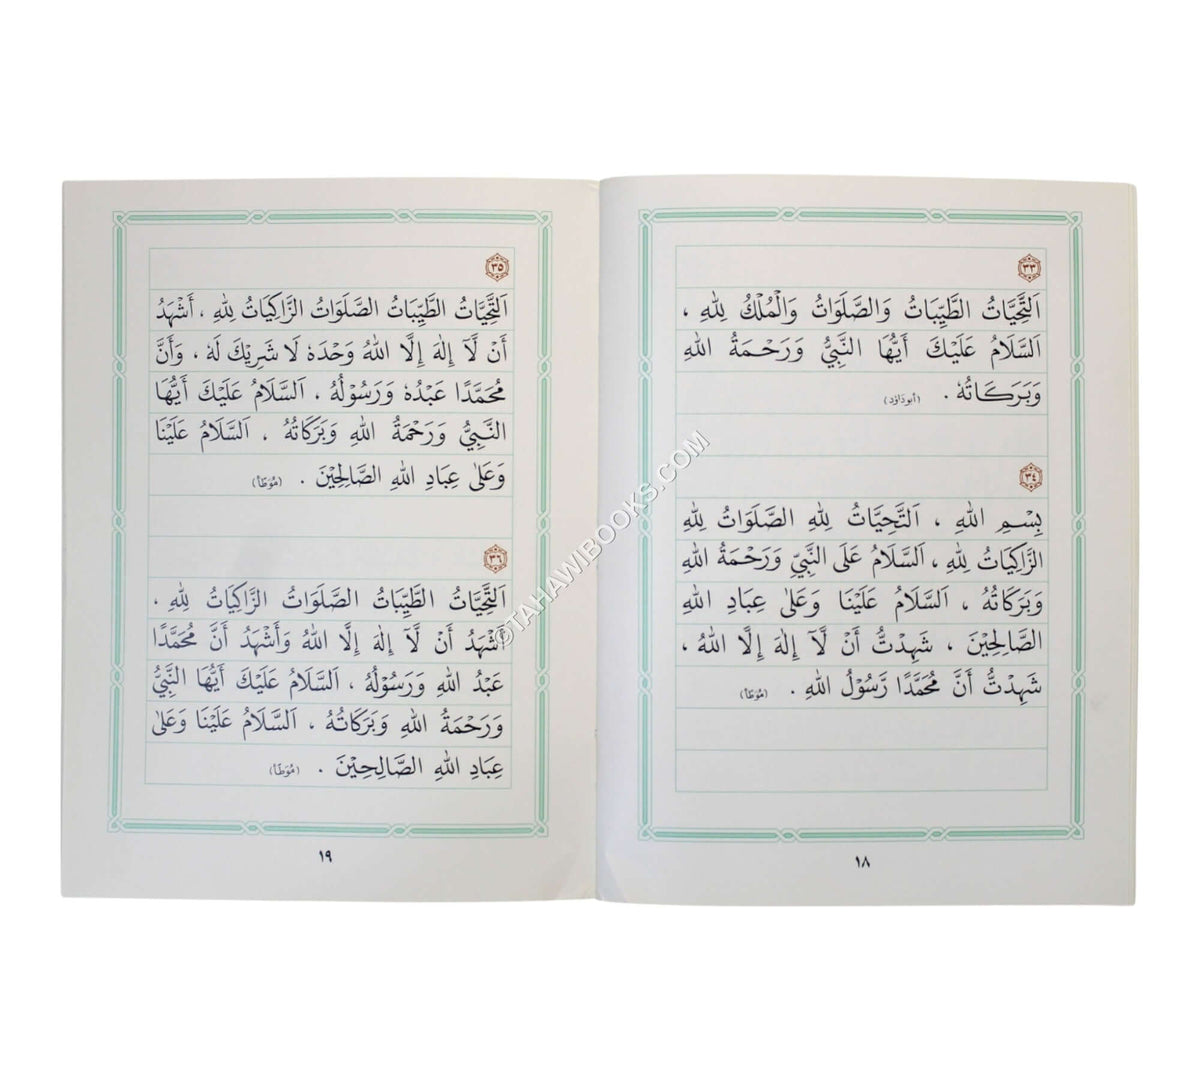 ٣٣
اَلتَّحِيَّاتُ الطَّيِّبَاتُ وَالصَّلَوَاتُ وَالْمُلْكُ لِلّٰهِ ،
اَلسَّلَامُ عَلَيْكَ أَيُّهَا النَّبِيُّ وَرَحْمَةُ اللهِ
وَبَرَكَاتُهٗ . (أبوداوٗد)
٣٤
بِسْمِ اللهِ ، اَلتَّحِيَّاتُ لِلّٰهِ الصَّلَوَاتُ لِلّٰهِ
الزَّاكِيَاتُ لِلّٰهِ ، اَلسَّلَامُ عَلَى النَّبِيِّ وَرَحْمَةُ اللهِ
وَبَرَكَاتُهُ ، اَلسَّلَامُ عَلَيْنَا وَعَلىٰ عِبَادِ اللهِ
الصَّالِحِيْنَ ، شَهِدْتُّ أَنْ لَّآ إِلٰهَ إِلَّا اللهُ ،
شَهِدْتُّ أَنَّ مُحَمَّدًا رَّسُوْلُ اللهِ . (مُوَطَأ)
١٨
٣٥
اَلتَّحِيَّاتُ الطَّيِّبَاتُ الصَّلَوَاتُ الزَّاكِيَاتُ لِلّٰهِ ، أَشْهَدُ
أَنْ لَّآ إِلٰهَ إِلَّا اللهُ وَحْدَهٗ لَا شَرِيْكَ لَهٗ ، وَأَنَّ
مُحَمَّدًا عَبْدُهٗ وَرَسُوْلُهُ . اَلسَّلَامُ عَلَيْكَ أَيُّهَا
النَّبِيُّ وَرَحْمَةُ اللهِ وَبَرَكَاتُهُ . اَلسَّلَامُ عَلَيْنَا
وَعَلىٰ عِبَادِ اللهِ الصَّالِحِيْنَ . (مُوَطَأ)
٣٦
اَلتَّحِيَّاتُ الطَّيِّبَاتُ الصَّلَوَاتُ الزَّاكِيَاتُ لِلّٰهِ ،
أَشْهَدُ أَنْ لَّآ إِلٰهَ إِلَّا اللهُ وَأَشْهَدُ أَنَّ مُحَمَّدًا
عَبْدُ اللهِ وَرَسُوْلُهُ ، اَلسَّلَامُ عَلَيْكَ أَيُّهَا النَّبِيُّ
وَرَحْمَةُ اللهِ وَبَرَكَاتُهُ ، اَلسَّلَامُ عَلَيْنَا وَعَلىٰ
عِبَادِ اللهِ الصَّالِحِيْنَ . (مُوَطَأ)
١٩
©TAHAWIBOOKS.COM